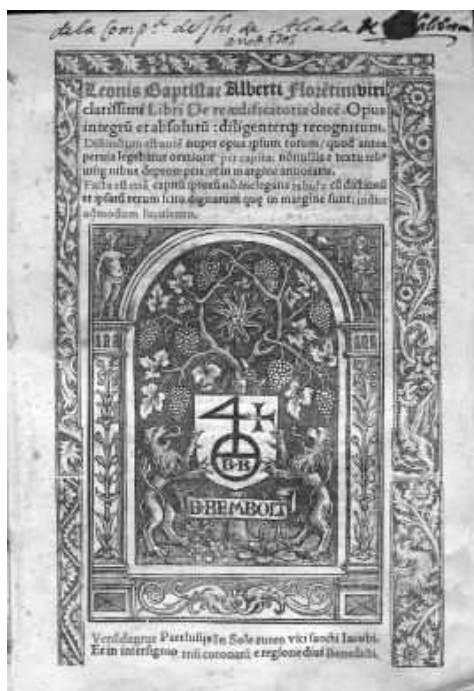 dela Comp.ª de Jhs de Alcala de
Leonis Baptistae Alberti Florētini viri
clarissimi Libri De re ædificatoria decē. Opus
integrū et absolutū: diligenterq̄ recognitum.
Distinctum est aūt nuper opus ipsum totum / quod antea
legebatur oratione per capita: nōnullis e textu
in margine annotatis.
Facta est etiā capitū ipsorū
et ipsarū rerum scitu dignarum quę in margine sunt: index
admodum luculentus.
4
B·B
B·BEMBOLT
Venūdantur Parrhisijs In Sole aureo vici sancti Iacobi.
Et in intersignio triū coronarū e regione diui Benedicti.